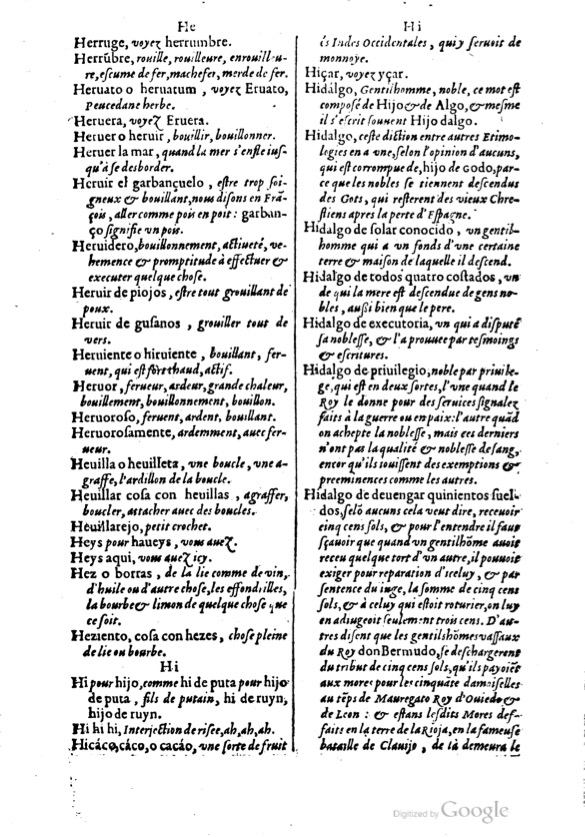 He
Herruge, voyez herrumbre.
Herrũbre, rouille, rouilleure, enrouilleu-
re, escume de fer, machefer, merde de fer.
Heruato o heruatum, voyez Eruato,
Peucedane herbe.
Heruera, voyez Eruera.
Heruer o heruir, bouillir, bouillonner.
Heruer la mar, quand la mer s'enfle ius-
qu'à se desborder.
Heruir el garbançuelo, estre trop soi-
gneux & bouillant, nous disons en Frã-
çois, aller comme pois en pot: garban-
ço signifie vn pois.
Heruidero, bouillonnement, actiueté, ve-
hemence & promptitude à effectuer &
executer quelque chose.
Heruir de piojos, estre tout grouillant de
poux.
Heruir de gusanos, grouiller tout de
vers.
Heruiente o hiruiente, bouillant, fer-
uent, qui est fort chaud, actif.
Heruor, ferueur, ardeur, grande chaleur,
bouillement, bouillonnement, bouillon.
Heruoroso, feruent, ardent, bouillant.
Heruorosamente, ardemment, auec fer-
ueur.
Heuilla o heuilleta, vne boucle, vne a-
graffe, l'ardillon de la boucle.
Heuillar cosa con heuillas, agraffer,
boucler, attacher auec des boucles.
Heuillarejo, petit crochet.
Heys pour haueys, vous auez.
Heys aqui, vous auez icy.
Hez o borras, de la lie comme de vin,
d'huile ou d'autre chose, les effondrilles,
la bourbe & limon de quelque chose que
ce soit.
Heziento, cosa con hezes, chose pleine
de lie ou bourbe.
Hi
Hi pour hijo, comme hi de puta pour hijo
de puta, fils de putain, hi de ruyn,
hijo de ruyn.
Hi hi hi, Interjection de risee, ah, ah, ah.
Hicáco, cáco, o cacáo, vne sorte de fruit
Hi
és Indes Occidentales, qui y seruoit de
monnoye.
Hiçar, voyez yçar.
Hidálgo, Gentilhomme, noble, ce mot est
composé de Hijo & de Algo, & mesme
il s'escrit souuent Hijo dalgo.
Hidalgo, ceste diction entre autres Etimo-
logies en a vne, selon l'opinion d'aucuns,
qui est corrompue de, hijo de Godo, par-
ce que les nobles se tiennent descendus
des Gots, qui resterent des vieux Chre-
stiens apres la perte d'Espagne.
Hidalgo de solar conocido, vn gentil-
homme qui a vn fonds d'vne certaine
terre & maison de laquelle il descend.
Hidalgo de todos quatro costados, vn
de qui la mere est descendue de gens no-
bles, aussi bien que le pere.
Hidalgo de executoria, vn qui a disputé
sa noblesse, & l'a prouuee par tesmoings
& escritures.
Hidalgo de priuilegio, noble par priuile-
ge, qui est en deux sortes, l'vne quand le
Roy le donne pour des seruices signalez
faits à la guerre ou en paix: l'autre quãd
on achepte la noblesse, mais ces derniers
n'ont pas la qualité & noblesse de sang,
encor qu'ils iouissent des exemptions &
preeminences comme les autres.
Hidalgo de deuengar quinientos suel-
dos, selõ aucuns cela veut dire, receuoir
cinq cens sols, & pour l'entendre il faut
sçauoir que quand vn gentilhõme auoit
receu quelque tort d'vn autre, il pouuoit
exiger pour reparation d'iceluy, & par
sentence du iuge, la somme de cinq cens
sols, & à celuy qui estoit roturier, on luy
en adiugeoit seulement trois cens. D'au-
tres disent que les gentilshõmes vassaux
du Roy don Bermudo, se deschargerent
du tribut de cinq cens sols, qu'ils payoiẽt
aux mores pour les cinquãte damoiselles
au tẽps de Mauregato Roy d'Ouiedo &
de Leon: & estans lesdits Mores def-
faits en la terre de la Rioja, en la fameuse
bataille de Clauijo, de là demeura le
Digitized by Google